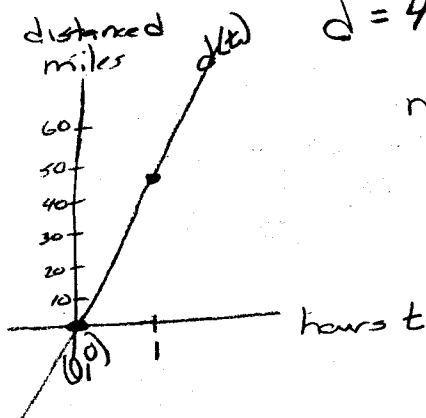 distance d
miles
d(t)
d = 4
60
50
40
30
20
10
(0,0)
1
hours t